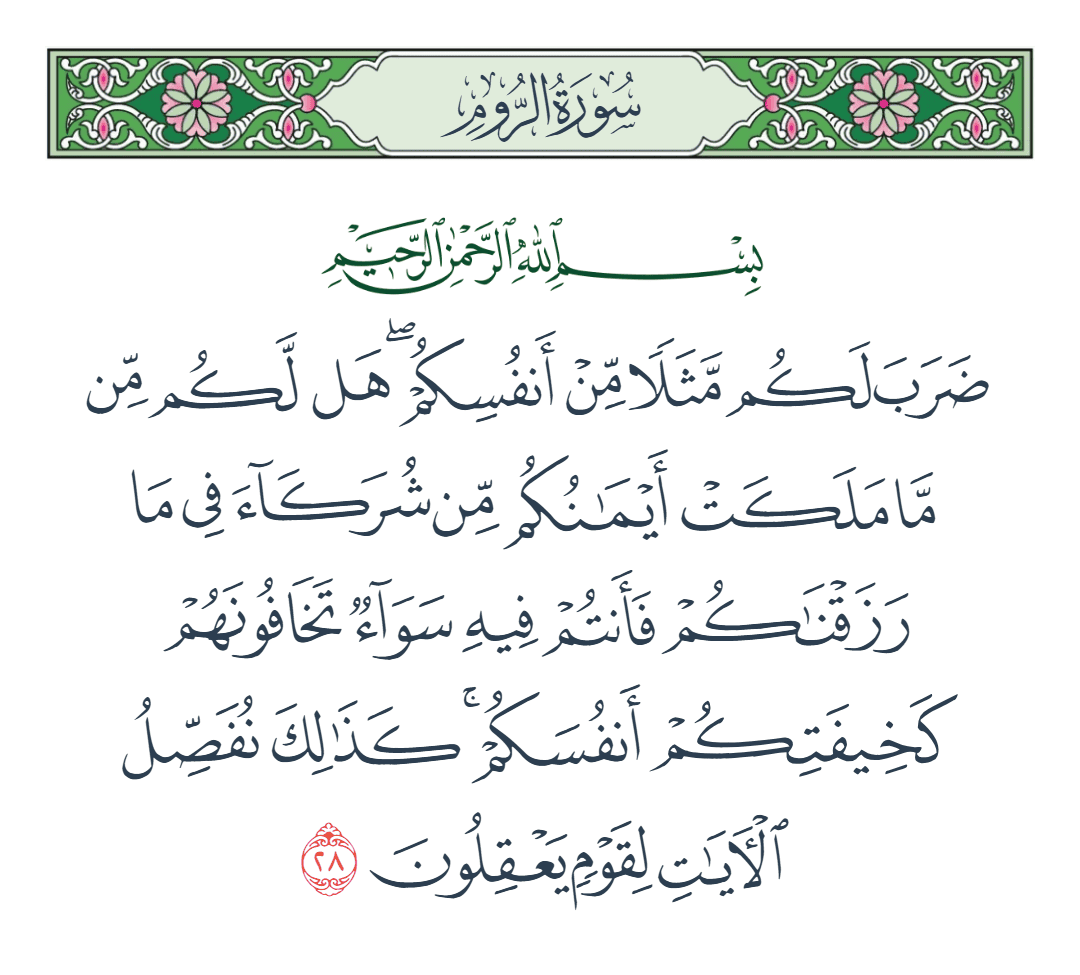 سُورَةُ الرُّومِ
بِسْمِ ٱللَّهِ ٱلرَّحْمَٰنِ ٱلرَّحِيمِ
ضَرَبَ لَكُم مَّثَلًا مِّنْ أَنفُسِكُمْ ۖ هَل لَّكُم مِّن
مَّا مَلَكَتْ أَيْمَٰنُكُم مِّن شُرَكَآءَ فِى مَا
رَزَقْنَٰكُمْ فَأَنتُمْ فِيهِ سَوَآءٌ تَخَافُونَهُمْ
كَخِيفَتِكُمْ أَنفُسَكُمْ ۚ كَذَٰلِكَ نُفَصِّلُ
ٱلْأَيَٰتِ لِقَوْمٍ يَعْقِلُونَ ٢٨